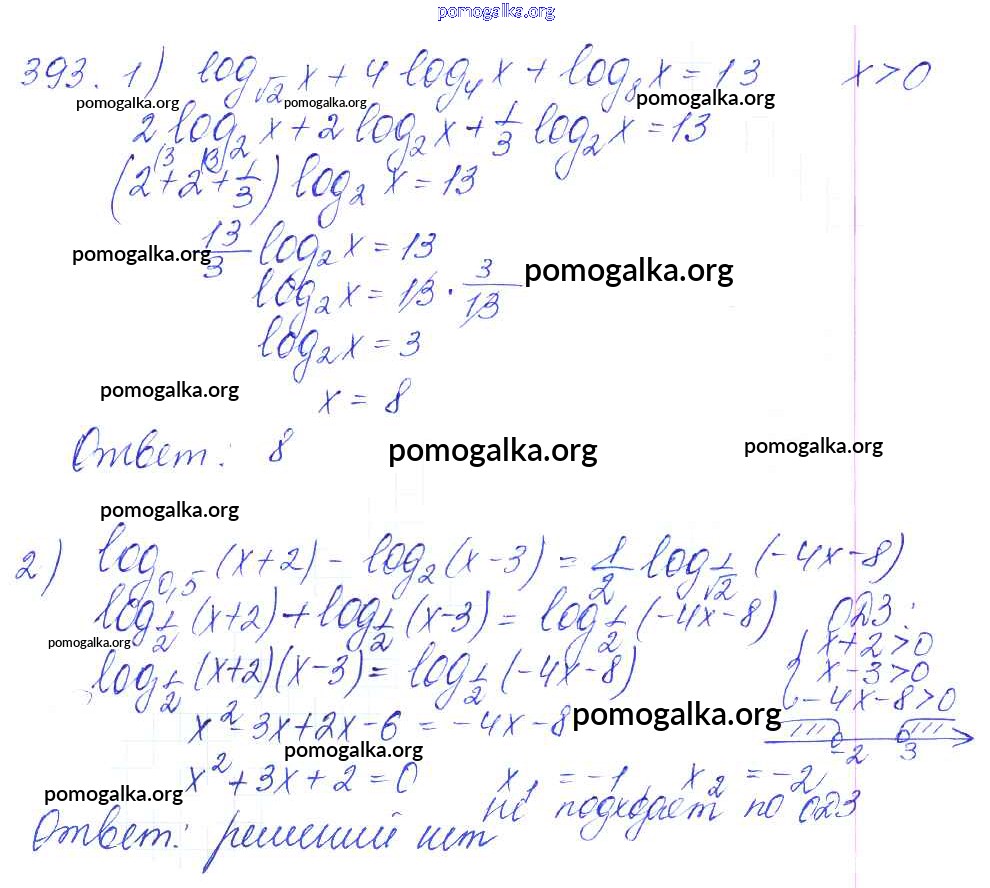 pomogalka.org
393. 1) log_√2 x + 4 log_4 x + log_8 x = 13 x > 0
pomogalka.org pomogalka.org pomogalka.org
2 log_2 x + 2 log_2 x + 1/3 log_2 x = 13
(2 + 2 + 1/3) log_2 x = 13
13/3 log_2 x = 13
pomogalka.org
log_2 x = 13 · 3/13
pomogalka.org
log_2 x = 3
x = 8
pomogalka.org
Ответ: 8
pomogalka.org pomogalka.org
pomogalka.org
2) log_0,5 (x+2) - log_2 (x-3) = 1/2 log_1/√2 (-4x-8)
log_1/2 (x+2) + log_1/2 (x-3) = log_1/2 (-4x-8) ОДЗ:
pomogalka.org
{ x+2>0
x-3>0
-4x-8>0
log_1/2 (x+2)(x-3) = log_1/2 (-4x-8)
x² - 3x + 2x - 6 = -4x - 8
pomogalka.org
-2 3
pomogalka.org
x² + 3x + 2 = 0 x_1 = -1, x_2 = -2
pomogalka.org
не подходят по ОДЗ
Ответ: решений нет